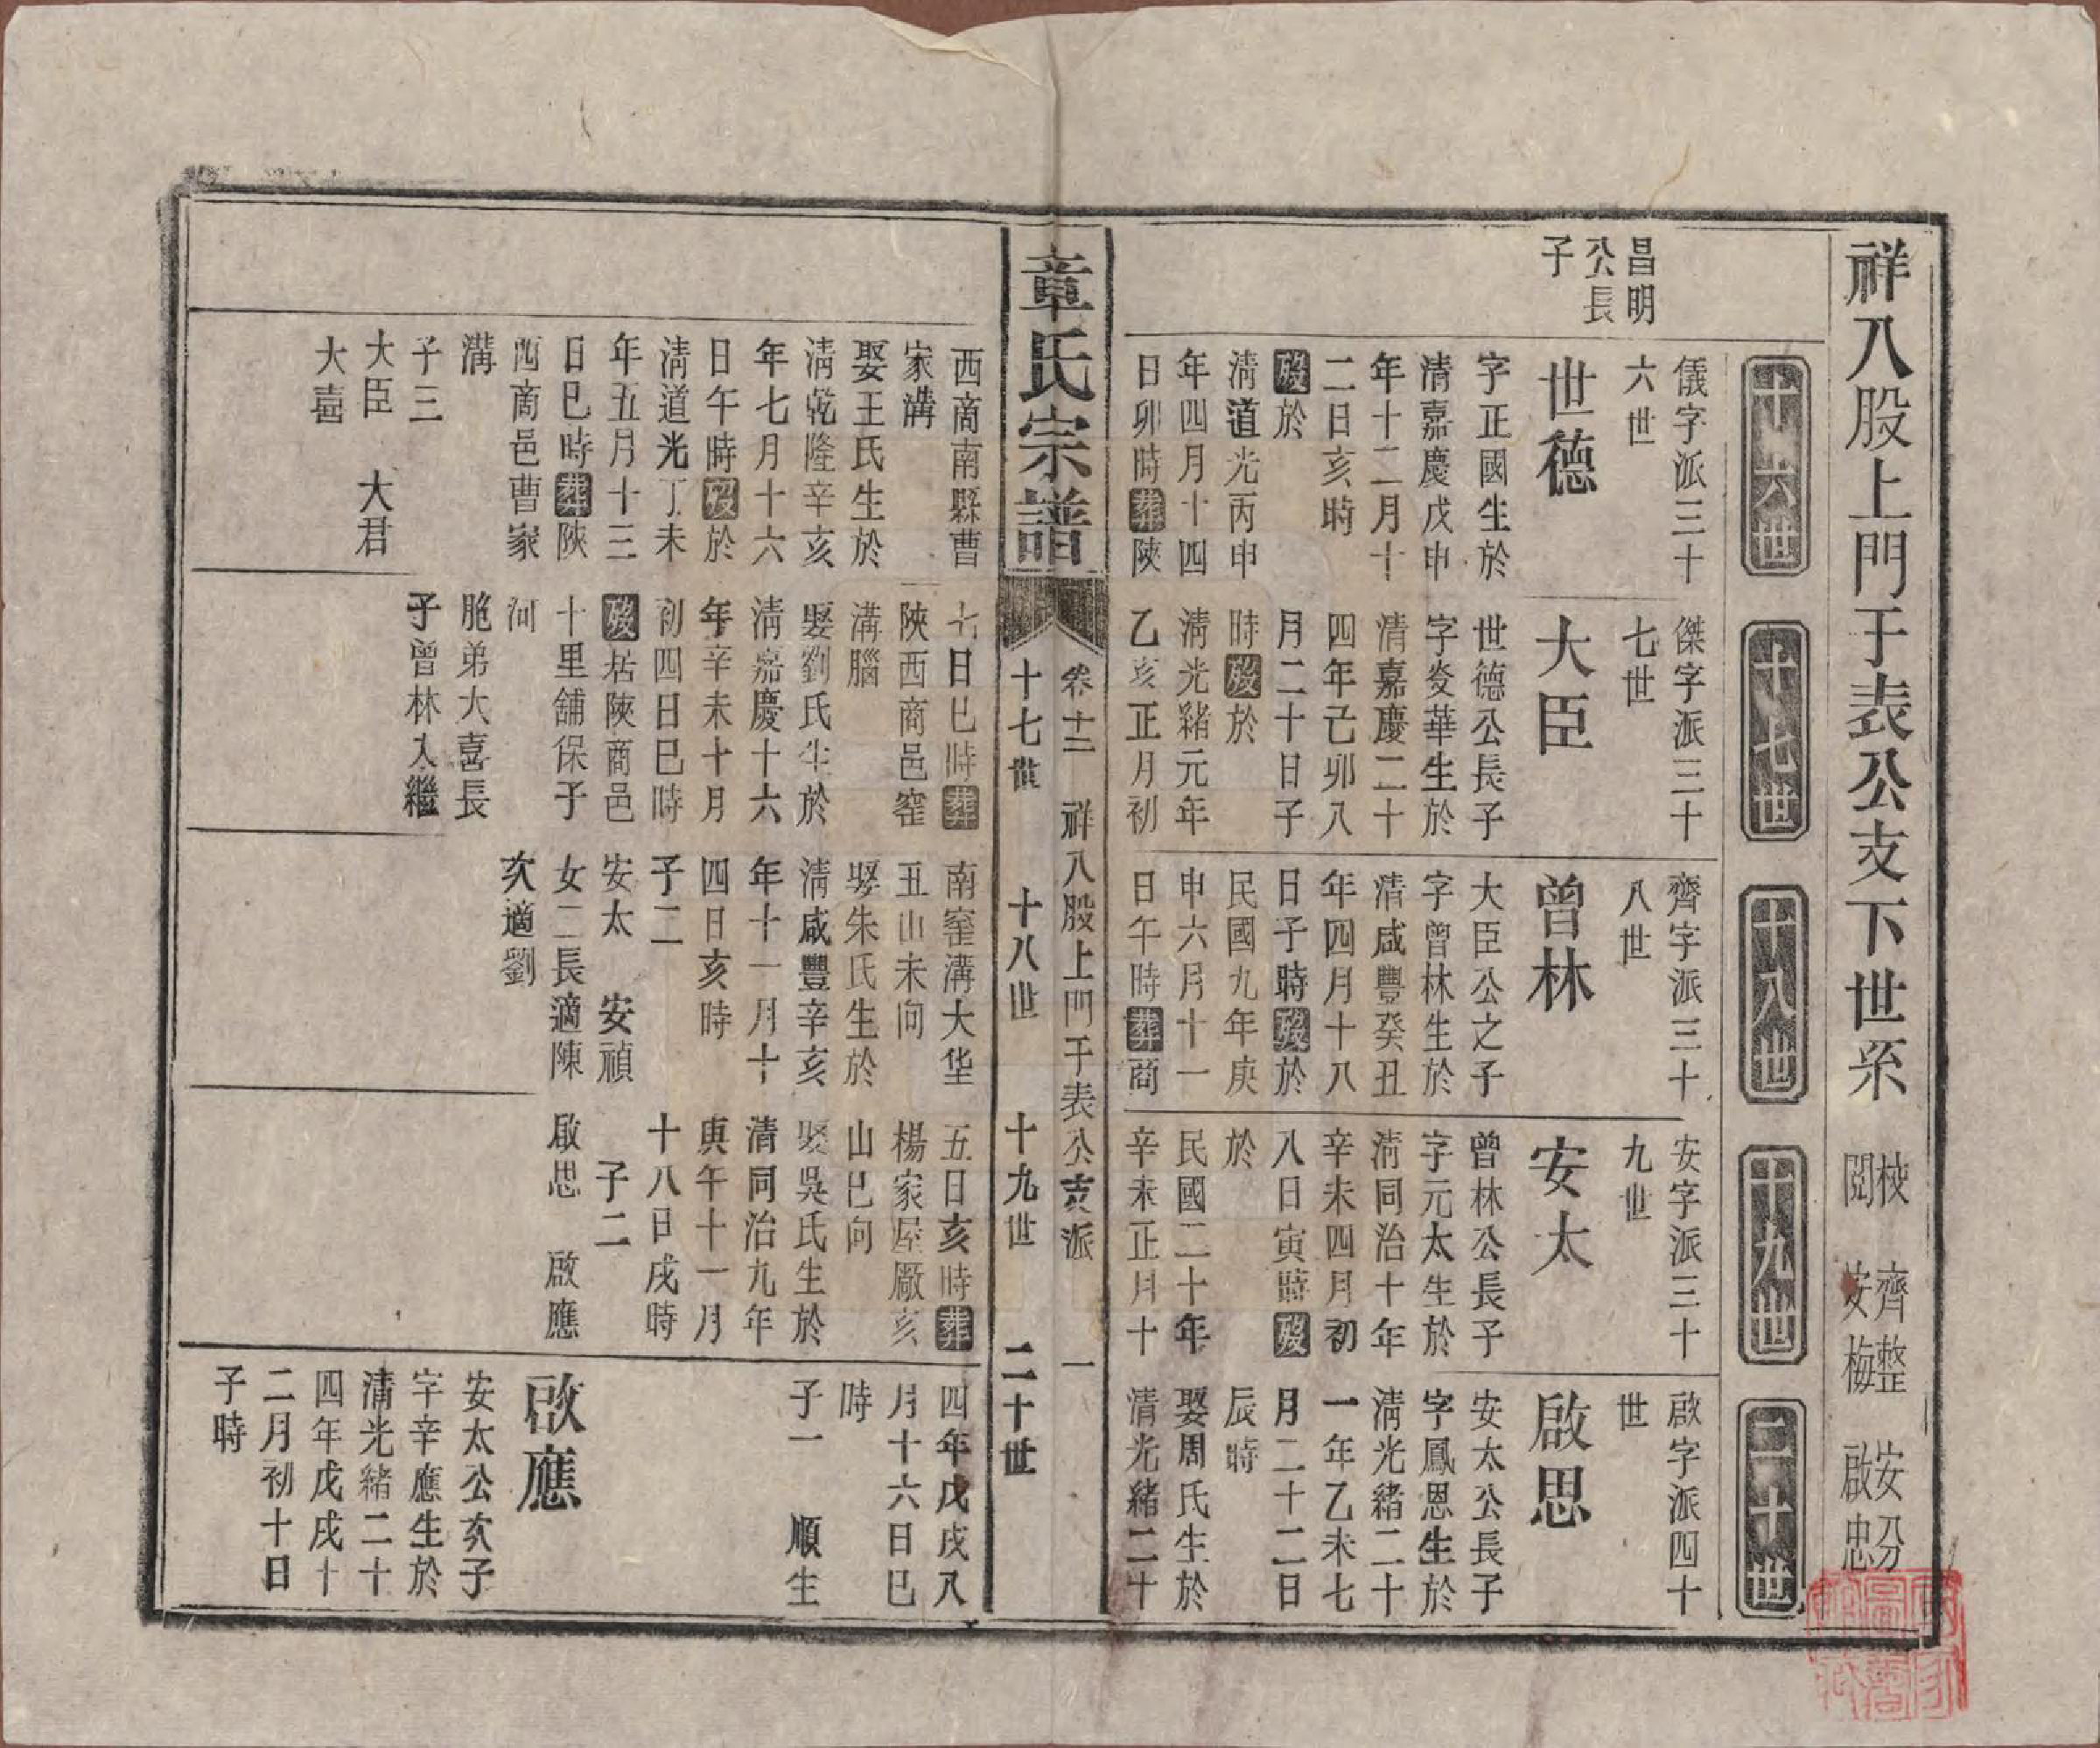 祥八股上門于表公支下世系
校 齊整 安分
閱 安梅 啟忠
十六世
十七世
十八世
十九世
二十世
昌明
公長
子
儀字派三十
六世
世德
字正國生於
清嘉慶戊申
年十二月十
二日亥時
歿於
清道光丙申
年四月十四
日卯時葬陝
傑字派三十
七世
大臣
世德公長子
字癸華生於
清嘉慶二十
四年己卯八
月二十日子
時歿於
清光緒元年
乙亥正月初
齊字派三十
八世
曾林
大臣公之子
字曾林生於
清咸豐癸丑
年四月十八
日子時歿於
民國九年庚
申六月十一
日午時葬商
安字派三十
九世
安太
曾林公長子
字元太生於
清同治十年
辛未四月初
八日寅時歿
於
民國二十年
辛未正月十
啟字派四十
世
啟思
安太公長子
字鳳恩生於
清光緒二十
一年乙未七
月二十二日
辰時
娶周氏生於
清光緒二十
章氏宗譜
卷十二 祥八股上門于表公支派 一
十七世 十八世 十九世 二十世
西商南縣曹
家溝
娶王氏生於
清乾隆辛亥
年七月十六
日午時歿於
清道光丁未
年五月十三
日巳時葬陝
西商邑曹家
溝
子三
大臣 大君
大喜
七日巳時葬
陝西商邑窰
溝腦
娶劉氏生於
清嘉慶十六
年辛未十月
初四日巳時
歿居陝商邑
十里舖保子
河
胞弟大喜長
子曾林入繼
南窰溝大垈
丑山未向
娶朱氏生於
清咸豐辛亥
年十一月十
四日亥時
子二
安太 安禎
女二長適陳
次適劉
五日亥時葬
楊家屋廠亥
山巳向
娶吳氏生於
清同治九年
庚午十一月
十八日戌時
子二
啟思 啟應
四年戊戌八
月十六日巳
時
子一 順生
啟應
安太公次子
字辛應生於
清光緒二十
四年戊戌十
二月初十日
子時